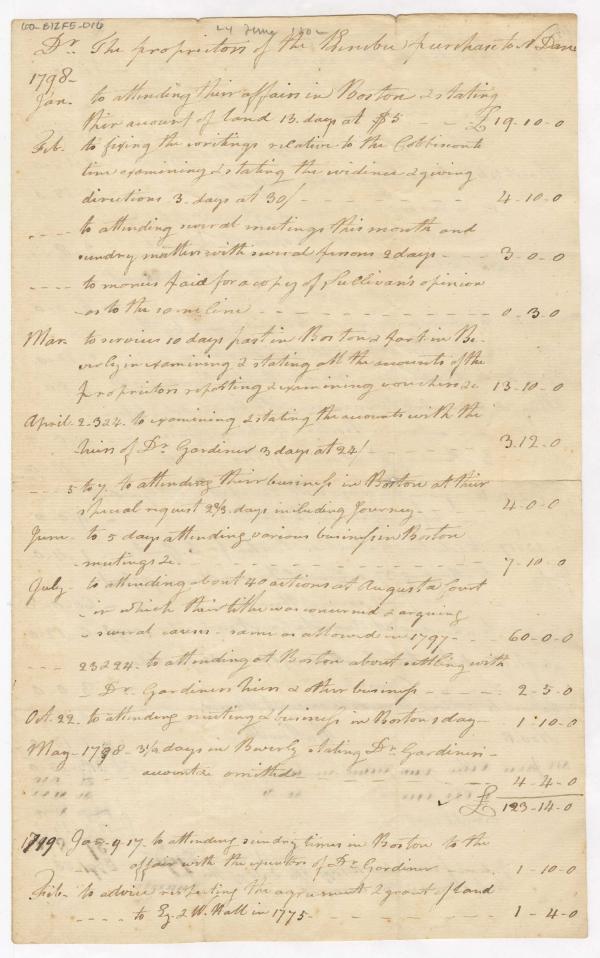 60-B12F5-016
24 June 1802
Dr. The proprietors of the Kennebec purchase to N Dane
1798-
Jan. to attending their affairs in Boston & stating
their account of land 13. days at $5 - - £ 19-10-0
Feb. to fixing the writings relative to the Cobbiscont
line examining & stating the evidence & giving
directions 3. days at 30/ - - - - - - - 4-10-0
- - - - to attending several meetings this month and
sundry matters with several persons 2 days - - - 3-0-0
- - - - to monies paid for a copy of Sullivan's opinion
as to the same line - - - - - - - - 0-3-0
Mar. to services 10 days part in Boston & part in Be-
verly in examining & stating all the accounts of the
proprietors reporting & examining vouchers &c 13-10-0
April. 2.3&4. to examining & stating the accounts with the
heirs of Dr. Gardiner 3 days at 24/ 3-12-0
- - - 5 to 7. to attending their business in Boston at their
special request 2 2/3 days including Journey - 4-0-0
June - to 5 days attending various business in Boston
meetings &c. - - - - - - - - - 7-10-0
July - to attending about 40 actions at Augusta Court
in which their title was concerned & arguing
several causes - same as allowed in 1797 - - 60-0-0
- - - 23 & 24 - to attending at Boston about settling with
Dr. Gardiners heirs & other business - - - - 2-5-0
Oct. 22. to attending meeting & business in Boston 1 day - 1-10-0
May - 1798 - 3 1/2 days in Beverly stating Dr. Gardiners
account &c omitted - - - - - - - 4-4-0
£ 123-14-0
1799 Jan - 9-17. to attending sundry times in Boston to the
affair with the executors of Dr. Gardiner - - - 1-10-0
Feb - to advice respecting the agreement & grant of land
- - - - to Ez. & W. Hall in 1775 - - - - - - 1-4-0